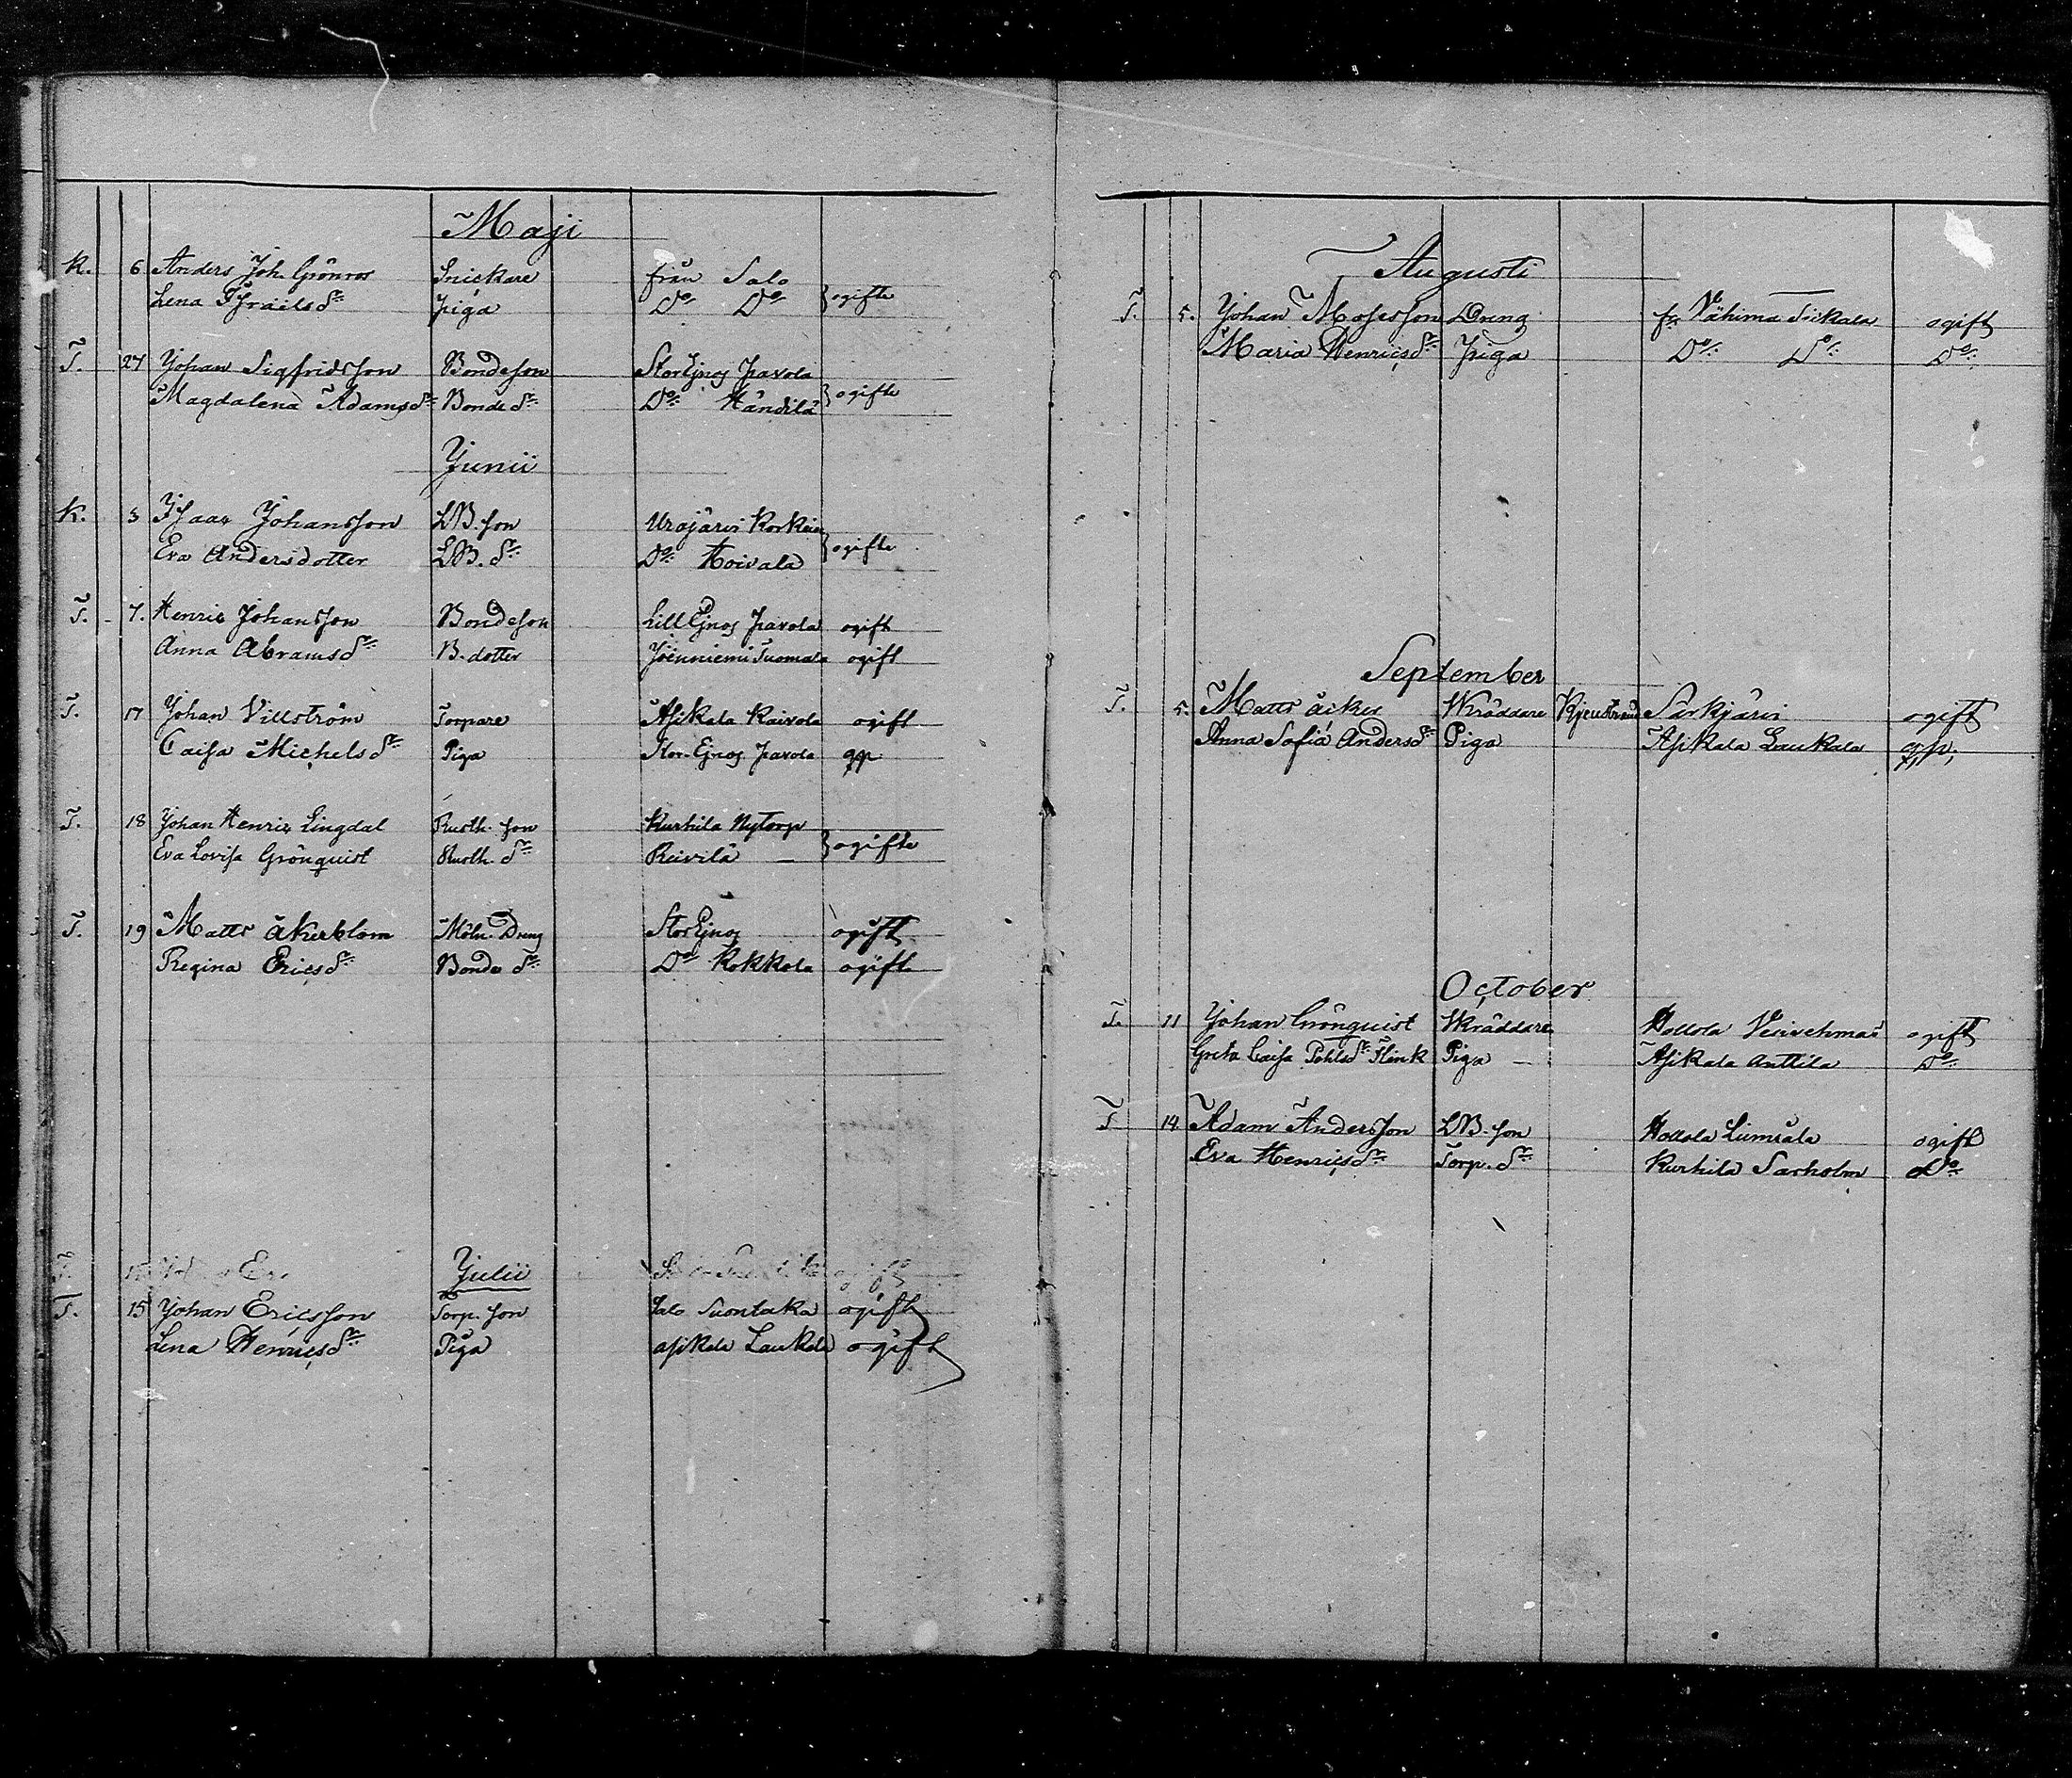 Maji
K. 6 Anders Joh. Grönros Snickare från Salo
Lena Isräils dr Piga Do Do } ogifte
T. 27 Johan Sigfridsson Bondeson StorEjnos Pavola
Magdalena Adams dr Bonde dr Do Händilä } ogifte
Junii
K. 3 Isaac Johansson LB. son Urajärvi
Eva Andersdotter LB. dr Do Hoivala } ogifte
T. 7. Henric Johansson Bondeson Lill Ejnos Pavola ogift
Anna Abrams dr B. dotter Suomala ogift
T. 17 Johan Villström Torpare Asikala Kaivola ogift
Caisa Michels dr Piga Stor-Ejnos Pavola
T. 18 Johan Henric Lingdal Rusth. son Kurhila Nytorp
Eva Lovisa Grönquist Rusth. dr Reivilä } ogifte
T. 19 Matts Åkerblom Möln. Dreng StorEjnos ogift
Regina Erics dr Bonde dr Do Kokkola ogift
Julii
T. 15 Johan Ericsson Torp. son Salo Suontaka ogift
Lena Henrics dr Piga asikala Laukala ogift
Augusti
T. 5. Johan Mosesson Dreng fr Vähima ogift
Maria Henrics dr Piga Do Do Do
September
T. 5. Matts Åiker Skräddare Särkjärvi ogift
Anna Sofia Anders dr Piga Asikala Laukala
October
T. 11 Johan Grönquist Skräddare Hollola ogift
Greta Caisa Pohls dr Flink Piga Asikala Anttila Do
T 14 Adam Andersson LB. son Hollola ogift
Eva Henrics dr Torp. dr Kurhila Sarholm Do